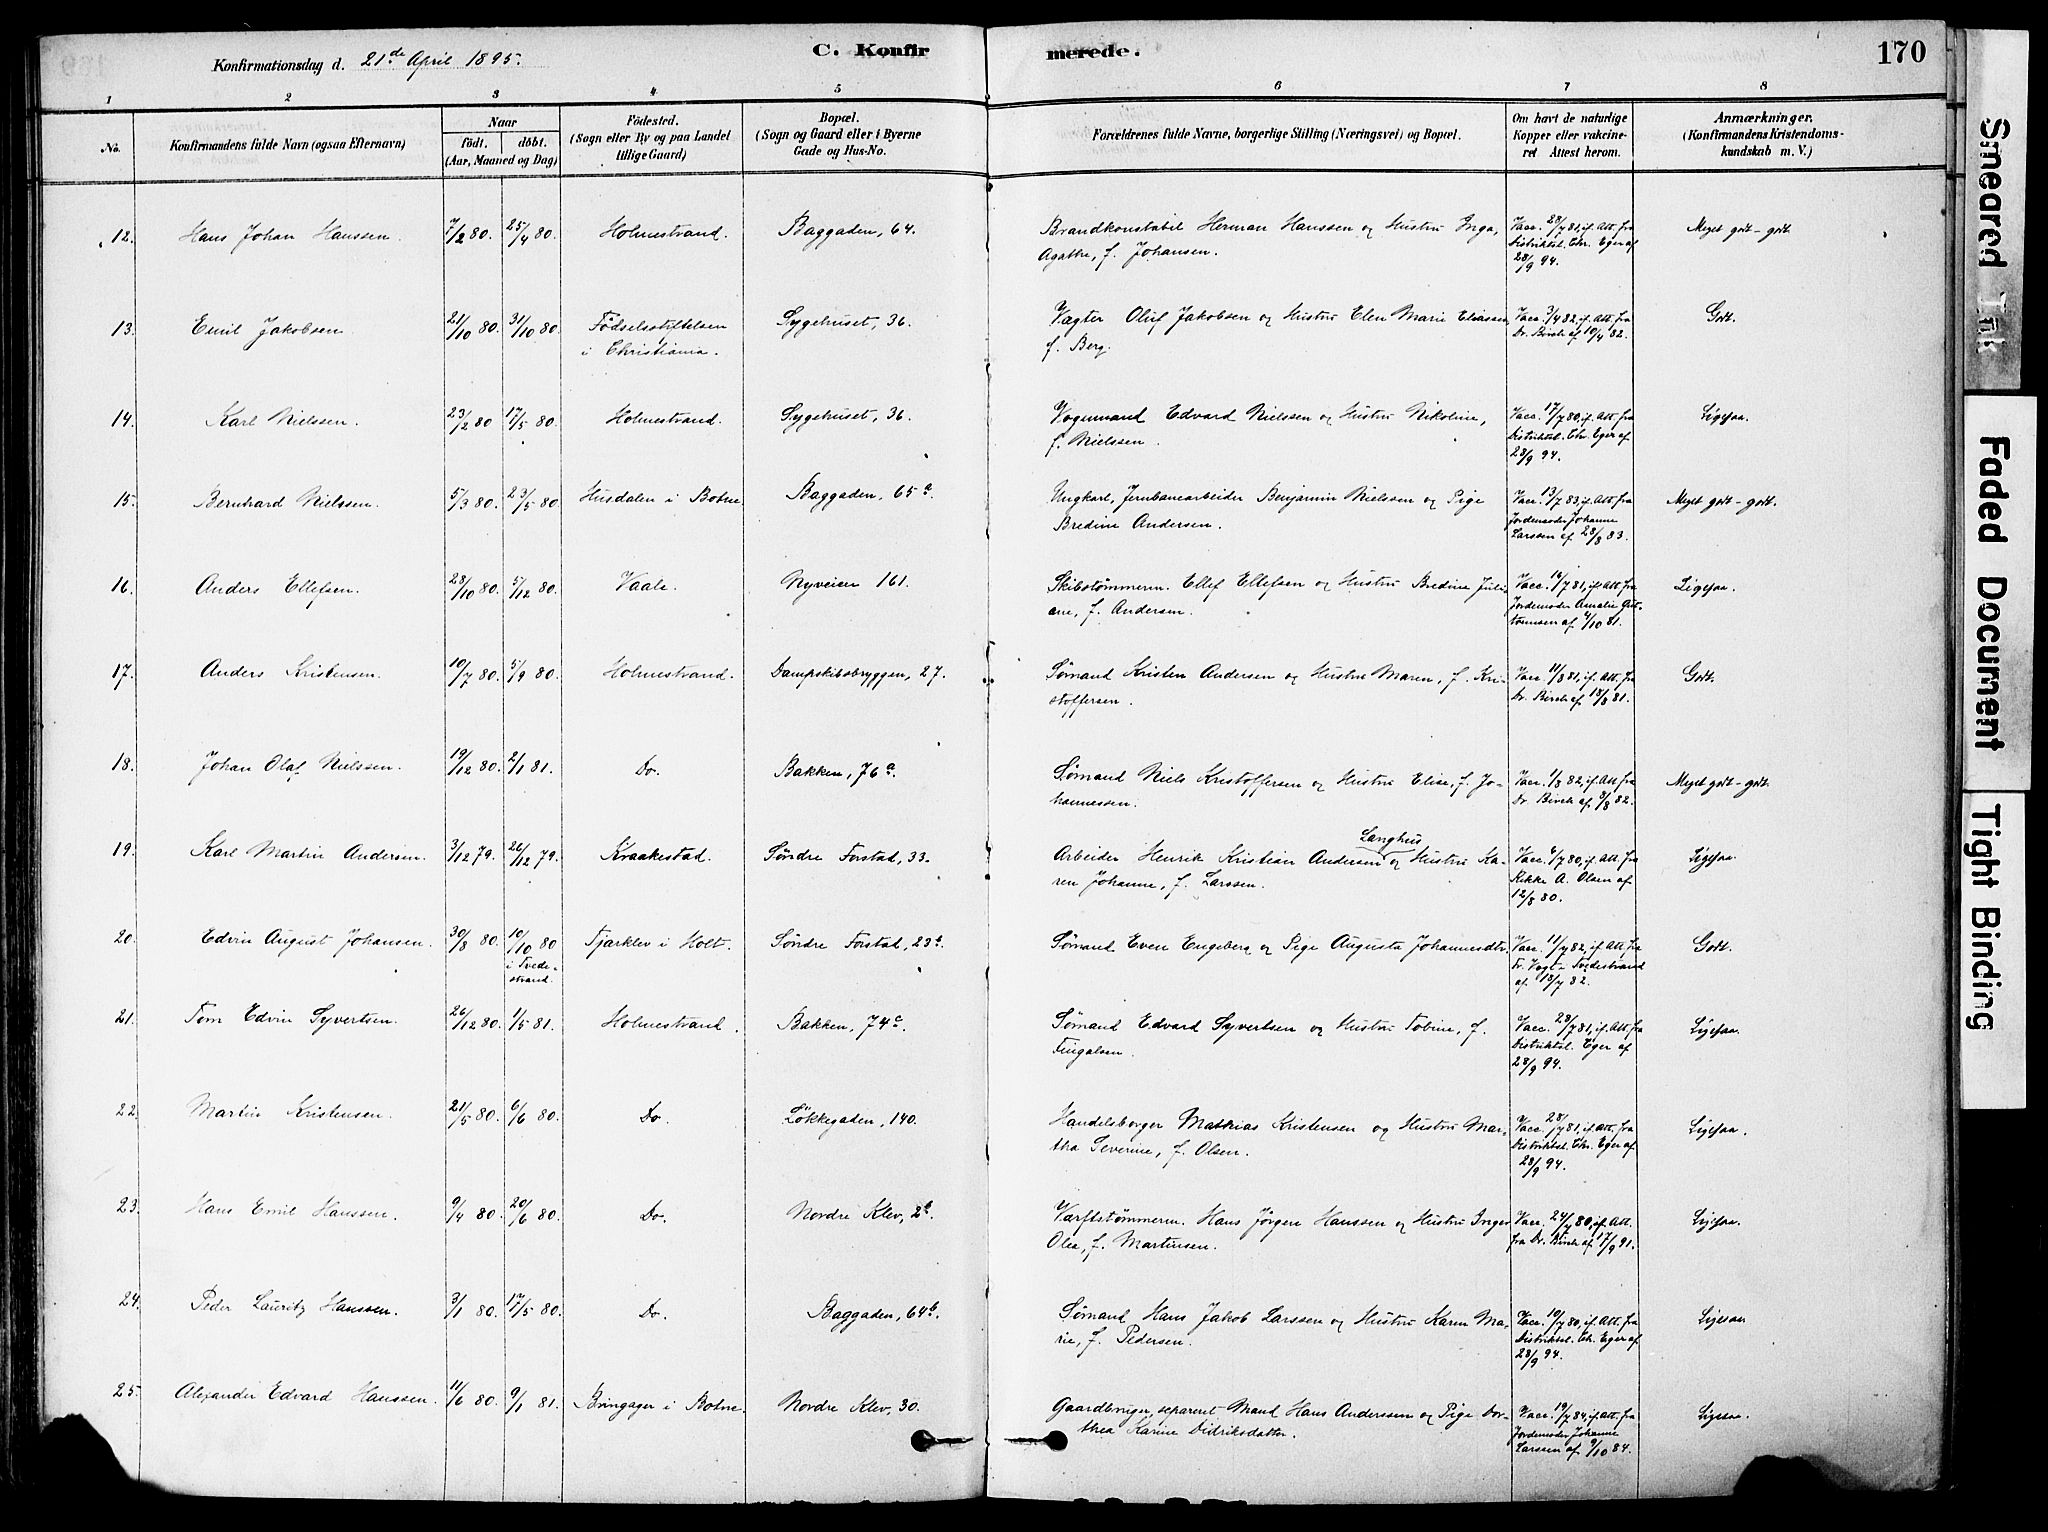 Konfirmationsdag d. 21de April 1895.
C. Konfir
merede.
170
1 2 3 4 5 6 7 8
No.
Konfirmandens fulde Navn (ogsaa Efternavn)
Naar
födt. döbt.
(Aar, Maaned og Dag)
Födested.
(Sogn eller By og paa Landet
tillige Gaard)
Bopæl.
(Sogn og Gaard eller i Byerne
Gade og Hus-No.
Forældrenes fulde Navne, borgerlige Stilling (Næringsvei) og Bopæl.
Om havt de naturlige
Kopper eller vakcine-
ret Attest herom.
Anmærkninger.
(Konfirmandens Kristendoms-
kundskab m. V.)
12. Hans Johan Hanssen. 7/2 80. 25/4 80. Holmestrand. Baggaden, 64. Brandkonstabil Herman Hanssen og Hustru Inga Vacc. 28/7 81, if. Att. fra Meget godt - godt.
Agathe, f. Johansen. Distriktsl. Chr. Eger af
28/9 94.
13. Emil Jakobsen 21/10 80. 31/10 80. Födselsstiftelsen Sygehuset, 36. Vægter Oluf Jakobsen og Hustru Elen Marie Eliassen Vacc. 3/4 82, if. Att. fra Godt.
i Christiania. f. Berg. Dr. Birch af 10/4 82.
14. Karl Nielssen. 23/2 80 17/5 80. Holmestrand. Sygehuset, 36. Vognmand Edvard Nielssen og Hustru Nikoline, Vacc. 17/7 80, if. Att. fra Ligesaa.
f. Nielssen. Distriktsl. Chr. Eger af
28/9 94.
15. Bernhard Nielssen. 5/3 80. 23/5 80. Husdalen i Botne Baggaden, 65a. Ungkarl, Jernbanearbeider Benjamin Nielssen og Pige Vacc. 13/7 83, if. Att. fra Meget godt - godt.
Bredine Andersen. Jordemoder Johanne
Larssen af 28/8 83.
16. Anders Ellefsen. 28/10 80. 5/12 80. Vaale. Nyveien 161. Skibstømmerm. Ellef Ellefsen og Hustru Bredine Juli- Vacc. 14/7 81, if. Att. fra Ligesaa.
ane, f. Andersen. Jordemoder Amalie Gut-
tormsen af 4/10 81.
17. Anders Kristensen. 10/7 80. 5/9 80. Holmestrand. Dampskibsbryggen, 27. Sømand Kristen Andersen og Hustru Maren, f. Kri- Vacc. 11/8 81, if. Att. fra Godt.
stoffersen. Dr. Birch af 18/8 81.
18. Johan Olaf Nielssen. 19/12 80. 2/1 81. Do. Bakken, 76a. Sømand Niels Kristoffersen og Hustru Elise, f. Jo- Vacc. 1/8 82, if. Att. fra Meget godt - godt.
hannessen. Dr. Birch af 8/8 82.
19. Karl Martin Andersen. 3/12 79. 26/12 79. Kraakestad. Söndre Forstad, 33. Arbeider Henrik Kristian Andersen Langhus og Hustru Ka- Vacc. 6/7 80, if. Att. fra Ligesaa.
ren Johanne, f. Larssen. Rikke A. Olsen af
12/8 80.
20. Edvin August Johansen. 30/8 80. 10/10 80 Tjarklev i Holt. Söndre Forstad, 23a. Sømand Even Engeberg og Pige Augusta Johannesdtr. Vacc. 11/7 82, if. Att. fra Godt.
i Tvede- Fr. Vogt i Tvedestrand
strand. af 18/7 82.
21. Tom Edvin Syvertsen. 26/12 80. 1/5 81. Holmestrand. Bakken, 74c. Sømand Edvard Syvertsen og Hustru Tobine, f. Vacc. 28/7 81, if. Att. fra Ligesaa.
Fingalsen. Distriktsl. Eger af
28/9 94.
22. Martin Kristensen. 21/5 80. 6/6 80. Do. Lökkegaden, 140. Handelsborger Mathias Kristensen og Hustru Mar- Vacc. 28/7 81, if. Att. fra Ligesaa.
tha Severine, f. Olsen. Distriktsl. Chr. Eger af
28/9 94.
23. Hans Emil Hanssen. 9/4 80. 20/6 80. Do. Nordre Klev, 2b. Værftstømmerm. Hans Jörgen Hanssen og Hustru Inger Vacc. 24/7 80, if. Att. Ligesaa.
Olea, f. Martinsen. fra Dr. Birch af 17/9 91.
24. Peder Lauritz Hanssen. 3/1 80. 17/5 80. Do. Baggaden, 64b. Sømand Hans Jakob Larssen og Hustru Karen Ma- Vacc. 19/7 80, if. Att. fra Ligesaa
rie, f. Pedersen. Distriktsl. Chr. Eger af
28/9 94.
25. Alexander Edvard Hanssen. 11/6 80. 9/1 81. Bringager i Botne. Nordre Klev, 30. Gaardbruger, separeret Mand Hans Anderssen og Pige Dor- Vacc. 19/7 84, if. Att. fra Ligesaa.
thea Karine Didriksdatter. Jordemoder Johanne
Larssen af 9/10 84.
Smeared Ink
Faded Document
Tight Binding